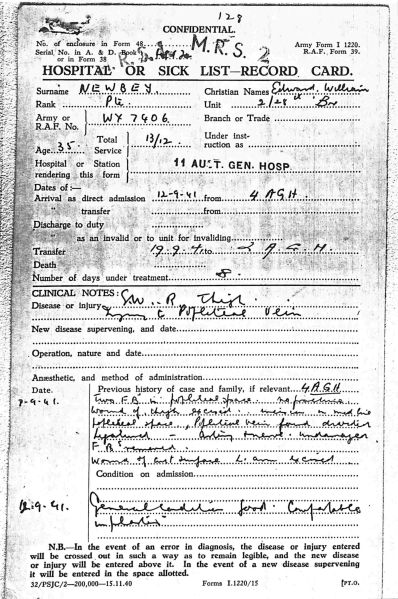 128
CONFIDENTIAL.
No. of enclosure in Form 48
Serial No. in A. & D. Book
or in Form 38
M.R.S. 2
Army Form I 1220.
R.A.F. Form 39.
HOSPITAL OR SICK LIST—RECORD CARD.
Surname NEWBEY. Christian Names Edward William
Rank Pte. Unit 2/28th Bn
Army or R.A.F. No. WX 7406 Branch or Trade
Age 35. Total Service 13/12. Under instruction as
Hospital or Station rendering this form 11 AUST. GEN. HOSP.
Dates of:—
Arrival as direct admission 12-9-41 from 4 AGH
„ transfer from
Discharge to duty
„ as an invalid or to unit for invaliding
Transfer 19-9-41 to 2 A.G.H.
Death
Number of days under treatment 8.
CLINICAL NOTES:
Disease or injury S.W. R Thigh.
Injury to Popliteal Vein
New disease supervening, and date
Operation, nature and date
Anæsthetic, and method of administration
Date. Previous history of case and family, if relevant 4 AGH
7-9-41. Two F.B. in popliteal space no fracture
Wound of thigh excised incision in
popliteal space, Popliteal vein found divided
F.B. removed
Wound of
Condition on admission
12-9-41. General Condition good. Comfortable
in plaster
N.B.—In the event of an error in diagnosis, the disease or injury entered
will be crossed out in such a way as to remain legible, and the new disease
or injury will be entered above it. In the event of a new disease supervening
it will be entered in the space allotted.
32/PSJC/2—200,000—15.11.40 Forms I.1220/15 [PT.O.